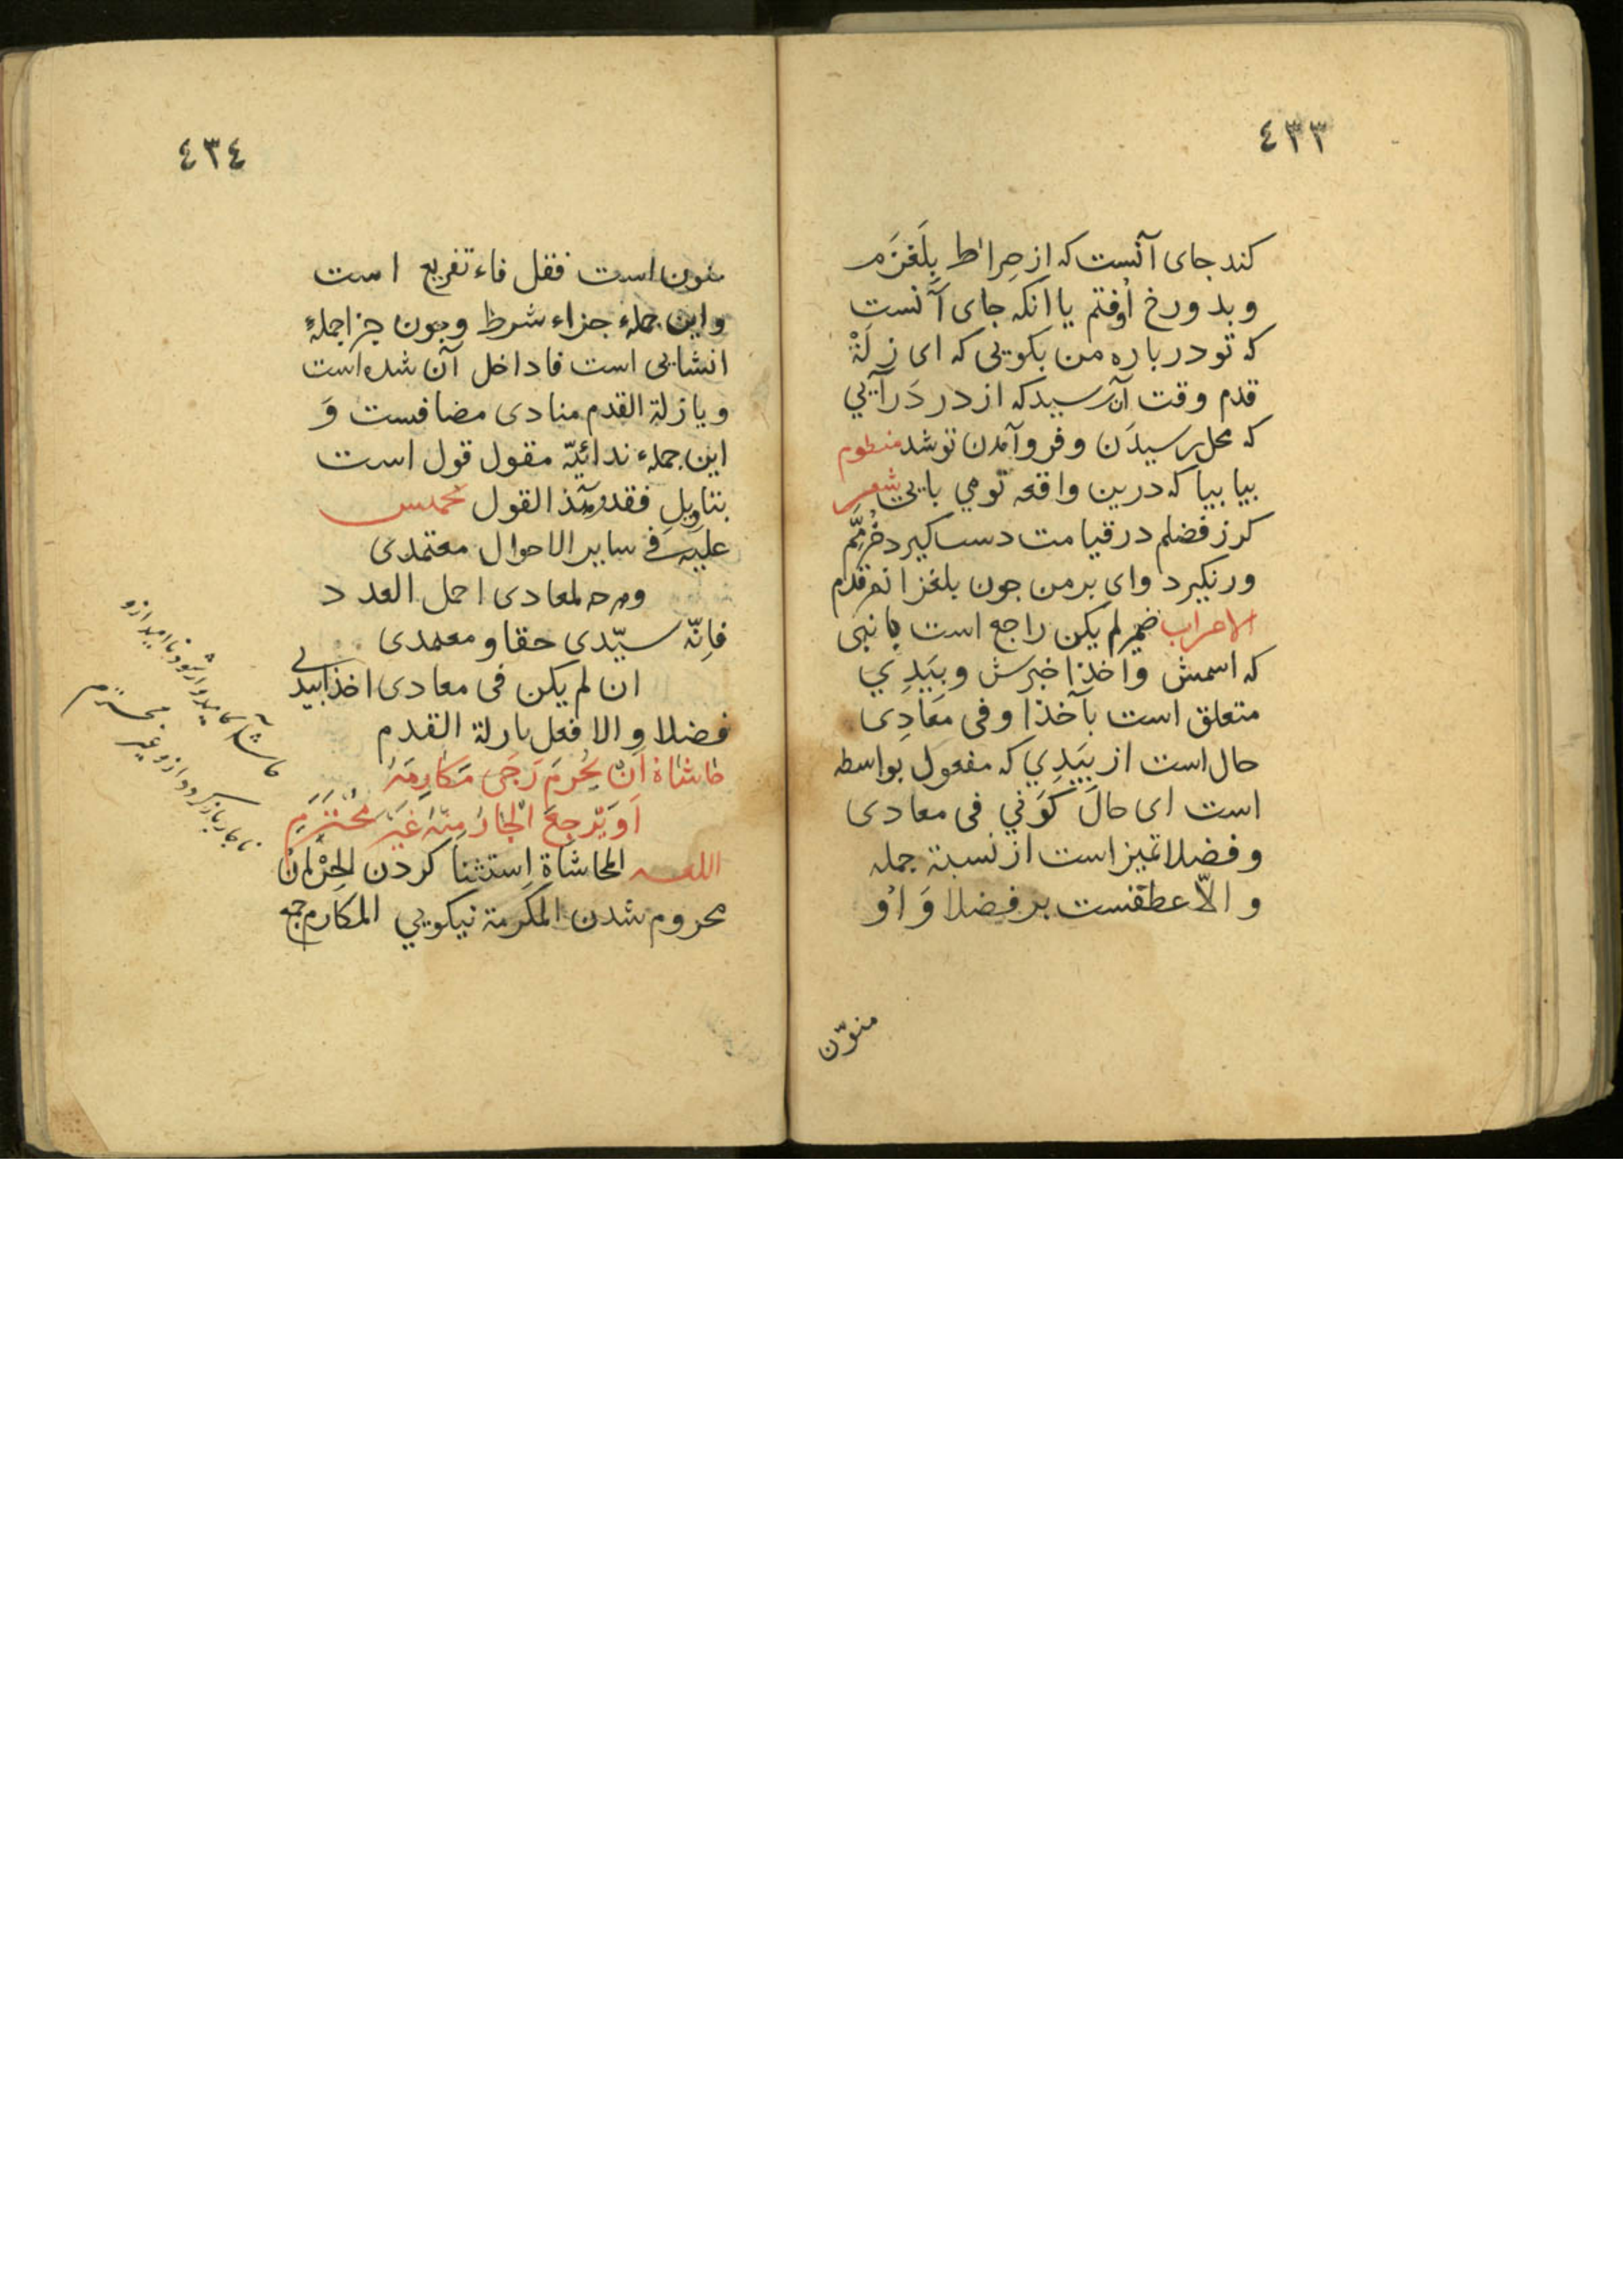 ٤٣٣
کند جای آنست که از صراط بلغزم
و بدورخ اوفتم یا انکه جای آنست
که تو درباره من بکویی که ای زلة
قدم وقت آن رسید که از در درآیی
که محل رسیدن و فروآمدن تو شد منظوم
بیا بیا که درین واقعه تومی بایی شعر
کر ز فضلم در قیامت دست کیرد خرّمم
ور نکیرد وای بر من جون بلغزانم قدم
الاعراب ضمیر لم یکن راجع است با نبی
که اسمش و اخذا خبرش و بیدی
متعلق است بآخذا و فی معادی
حال است از بیدی که مفعول بواسطه
است ای حال کونی فی معادی
و فضلا تمیز است از نسبة جمله
و الّا عطفست بر فضلا و او
منوّن
٤٣٤
منون است فقل فاء تفریع است
و این جمله جزاء شرط و جون جزا جملهٔ
انشایی است فا داخل آن شده است
و یا زلة القدم منادی مضافست و
این جمله ندائیّه مقول قول است
بتاویل فقدر هذ القول مخمس
علیه فی سایر الاحوال معتمدی
ومدحه لمعادی اجمل العدد
فانّه سیّدی حقا ومعمدی
ان لم یکن فی معادی اخذا بیدی
فضلا و الا فعل یا زلة القدم
حاشاه ان یحرم رجی مکارمه
او یرجع الجار منه غیر محترم
اللغه المحاشاة استثنا کردن الحرمان
محروم شدن المکرمة نیکویی المکارم جمع
حاشا کامیدوار شود ناامید ازو
یا جار باز کردد ازو غیر محترم